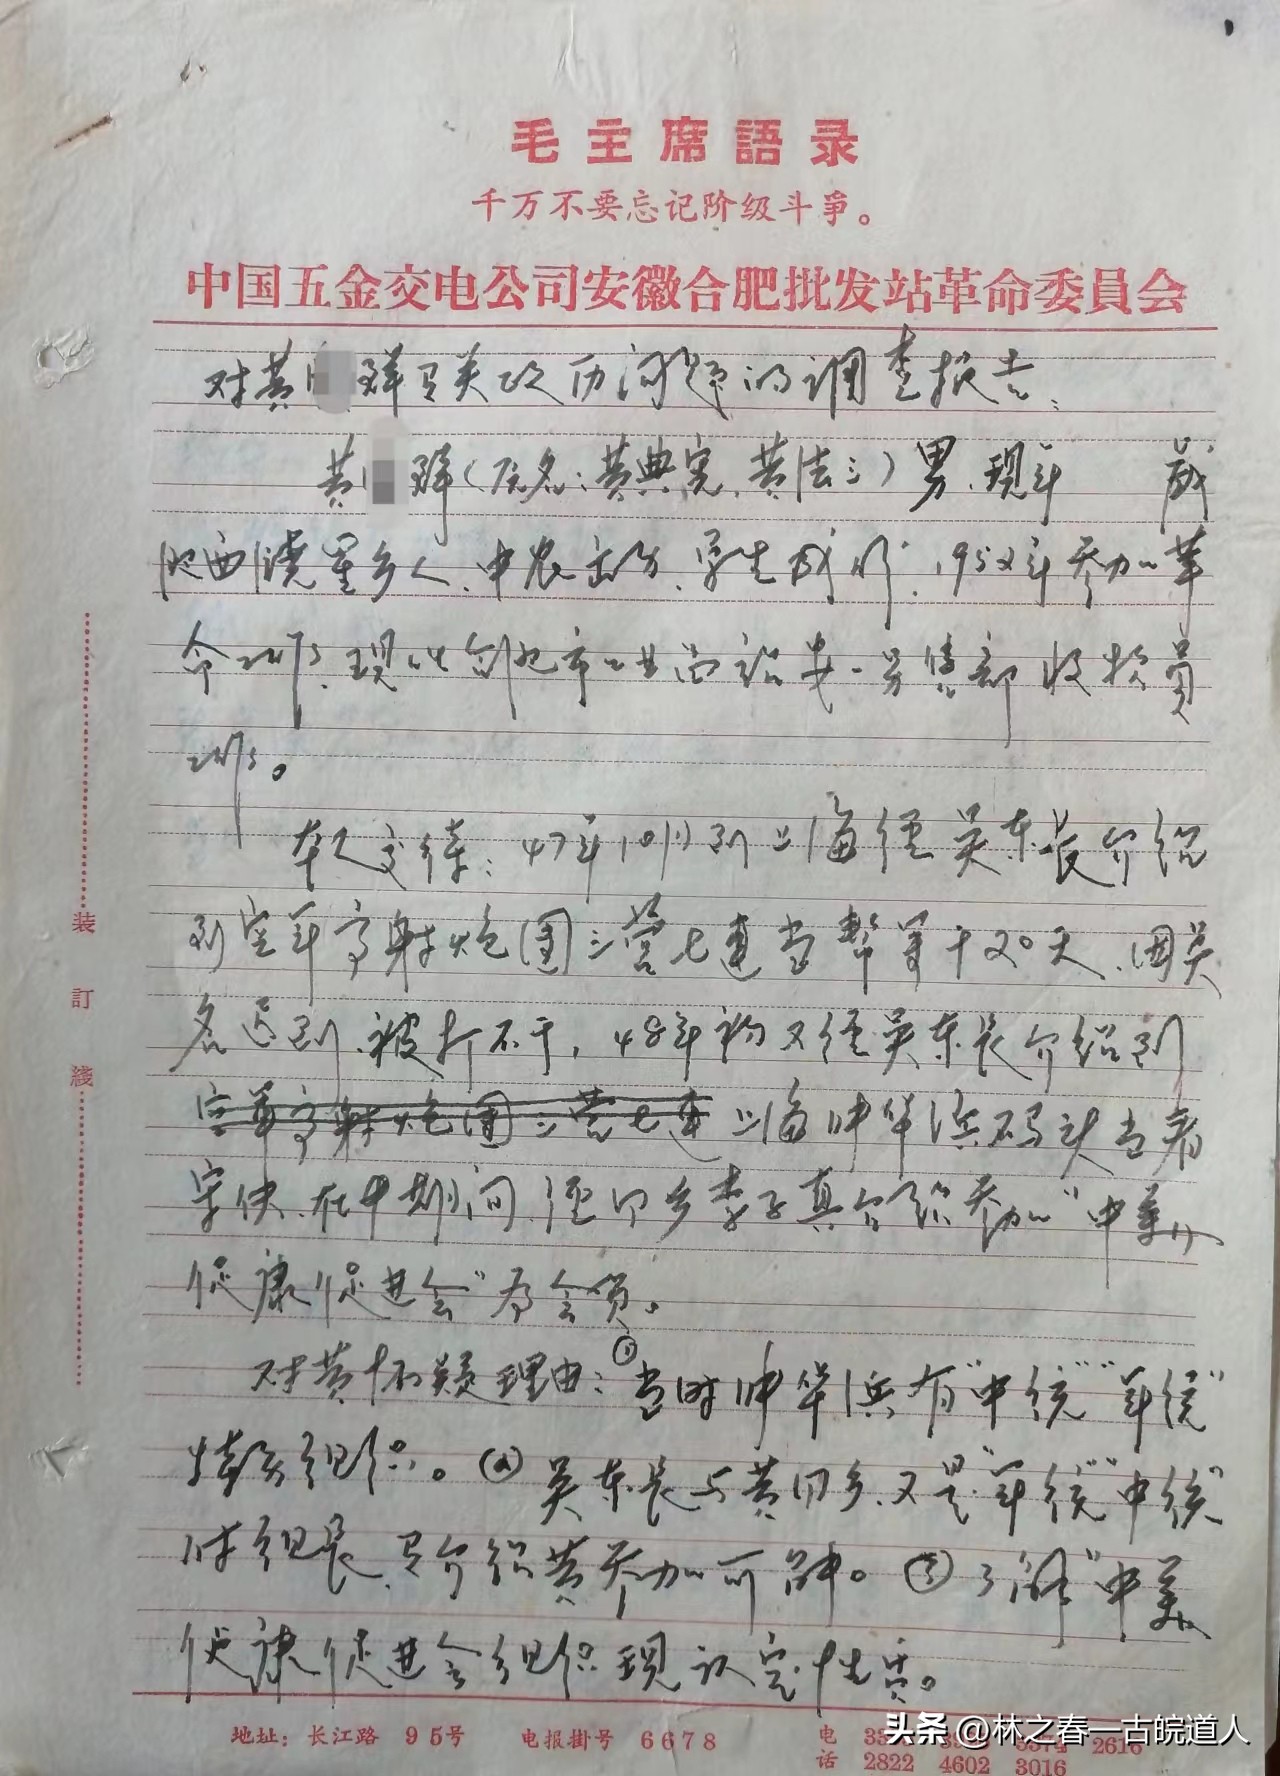 毛主席語录
千万不要忘记阶级斗爭。
中国五金交电公司安徽合肥批发站革命委員会
对黄 群有关政历问题的调查报告：
黄 群（原名：黄典宪、黄法三）男、现年 岁
肥西 乡人、中农出身、学生成份、195 年参加革
命工作、现 合肥市 收 员
工作。
本人交待：47年10月到上海经吴东长介绍
到空军高射炮团三营七连当帮 干20天、因吴
名 到、被打不干，48年初又经吴东长介绍到
空军高射炮团三营七连 上海 华浜码头当看
守伕、在 期间、经同乡李子真 参加"中美
健康促进会"为会员。
对黄怀疑理由：①当时 华浜有"中统""军统"
特务组织。②吴东长与黄同乡、又是"军统""中统"
组长、 介绍黄参加可 。③ "中美
健康促进会组织现认定性质。
装訂綫
地址：长江路 95号 电报掛号 6678 电话
2616
2822 4602 3016
头条 @林之春一古皖道人